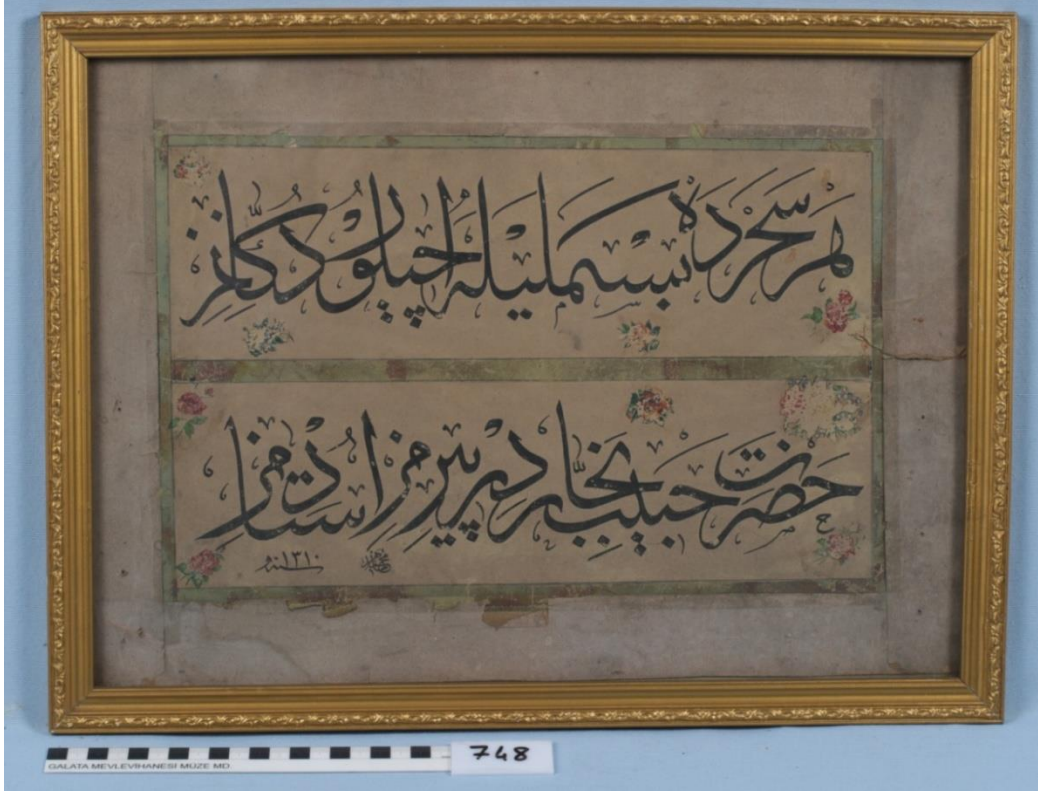 هر سحرده بسمليله آچيلور دكانمز
حضرت حبيب نجاردر پيرمز استادمز
سنه ١٣١٠
GALATA MEVLEVİHANESİ MÜZE MD.
748